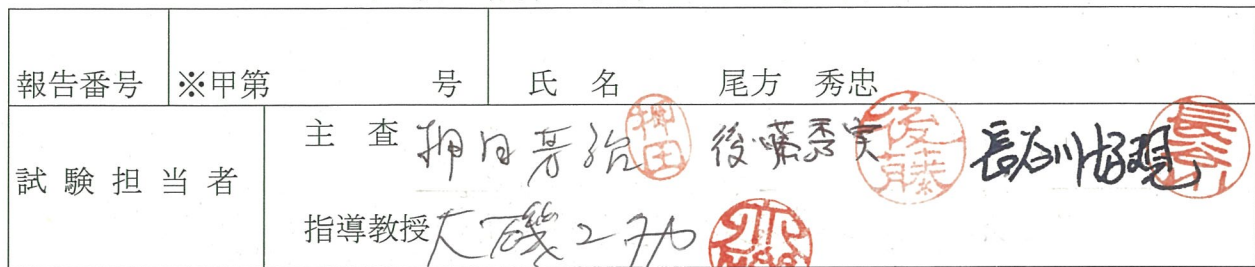 報告番号 ※甲第 号 氏 名 尾方 秀忠
試験担当者 主 査 押田芳治 押田 後藤秀実 後藤 長谷川好規
指導教授 大磯ユタカ